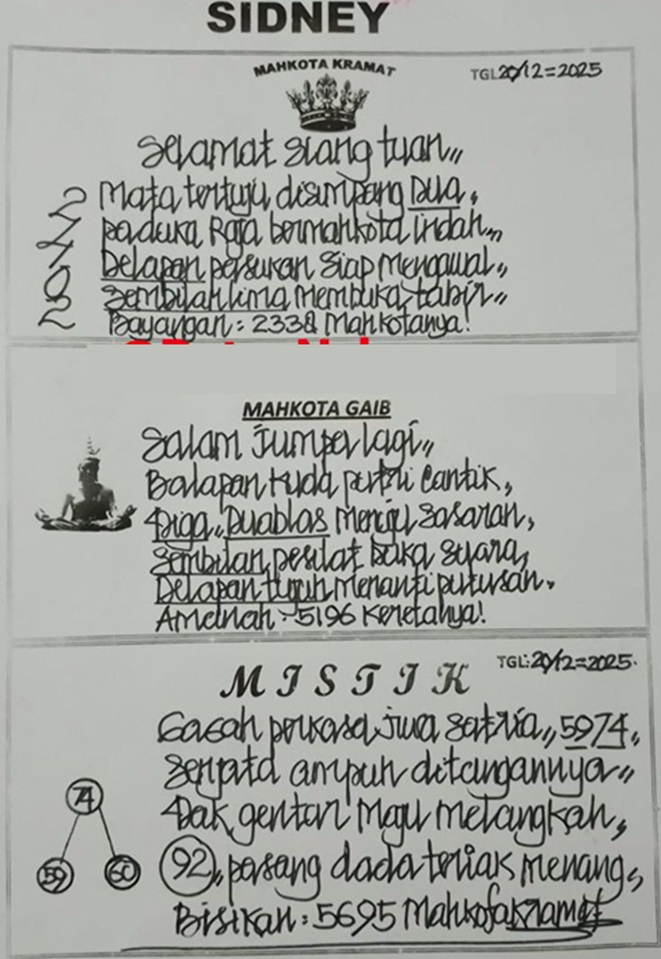 SIDNEY
MAHKOTA KRAMAT
TGL 20/12=2025
Selamat siang tuan,,
2 Mata tertuju disimpang Dua,
7 paduka Raja bermahkota indah,,
9 Delapan pasukan siap mengawal,,
2 Sembilan lima membuka, tabir,,
Bayangan: 2338 Mahkotanya!
MAHKOTA GAIB
Salam Jumpa lagi,,
Balapan kuda putri cantik,
Tiga,, Duablas menuju sasaran,
Sembilan pesilat buka suara,
Delapan tujuh menanti putusan.
Amanah:-5196 Keretanya!
MISTIK
TGL: 20/12=2025.
Gagah perkasa jiwa satria,, 5974,
Senjata ampuh ditangannya,,
Tak gentar Maju melangkah,
92,, pasang dada teriak menang,
Bisikan: 5695 Mahkota Kramat
74
59 60